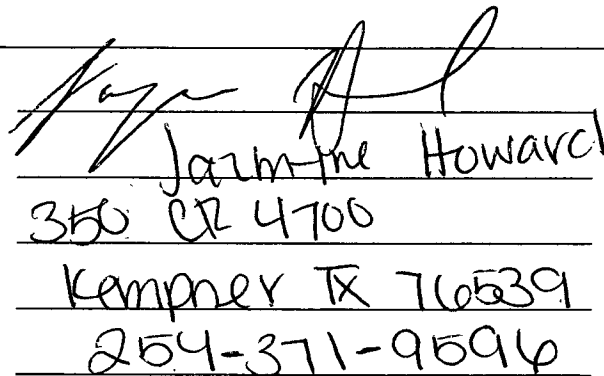 Jazmine Howard
350 CR 4700
Kempner TX 76539
254-371-9596